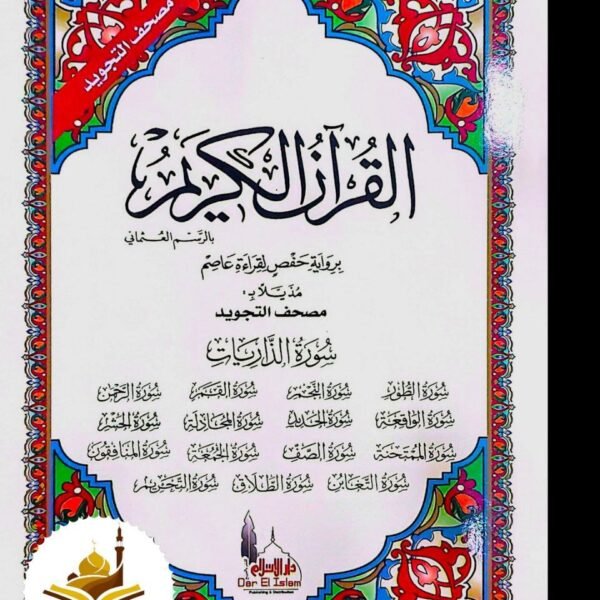 مصحف التجويد
القرآن الكريم
بالرسم العثماني
برواية حفص لقراءة عاصم
مذيلا بـ:
مصحف التجويد
سورة الذاريات
سورة الطور سورة النجم سورة القمر سورة الرحمن
سورة الواقعة سورة الحديد سورة المجادلة سورة الحشر
سورة الممتحنة سورة الصف سورة الجمعة سورة المنافقون
سورة التغابن سورة الطلاق سورة التحريم
دار الإسلام
Dar El Islam
Publishing & Distribution